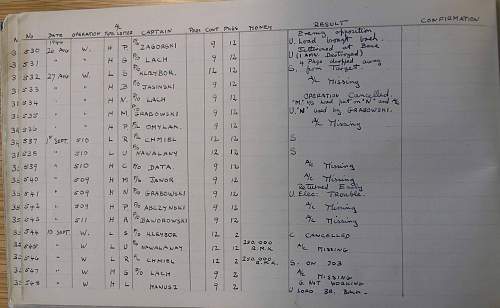 No DATE OPERATION A/C TYPE LETTER CAPTAIN PKGS CONT PKGS MONEY RESULT CONFIRMATION
1944 Enemy opposition
530 26 AUG W. H P ZAGORSKI 9 12 U. Load brought back.
Jettisoned at Base
531 " " H G LACH 9 12 U (1 AMN. Destroyed)
4 Pkgs dropped away
532 27 AUG W L S KLEYBOR. 12 12 S. from Target
533 " " H B JASINSKI 9 12 A/C MISSING
OPERATION Cancelled.
534 " " H N P/O LACH 9 12 "M"
535 " " H M GRABOWSKI 9 12 U. "N" used by GRABOWSKI.
536 " " H P OMYLAK. 9 12 A/c Missing
537 1st SEPT. 510 L R CHMIEL 12 12 S
538 " 510 L U NAWALANY 12 12 S
539 " 510 H C DATA. 9 12 A/c Missing
540 " 509 H M JENOR 9 12 A/c Missing
Returned Early
541 " 509 H N GRABOWSKI 9 12 U. Elec. Trouble.
542 " 509 H P ABCZYNSKI 9 12 A/c Missing
543 " 511 H A BAWOROWSKI 9 12 A/c Missing
544 10 SEPT W. L S KLEYBOR 12 2 C CANCELLED
545 " W L U NAWALANY 12 2 250.000 A/C MISSING
546 " W L R CHMIEL 12 2 250.000 S. ON JOB
547 " W H G P/O LACH 9 2 A/C MISSING
548 " W H L HANUSZ 9 2 G NOT WORKING
U LOAD BR. BACK.